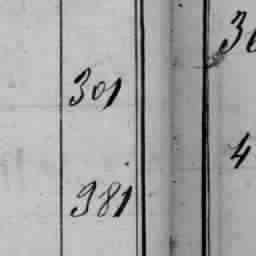 301
981
4